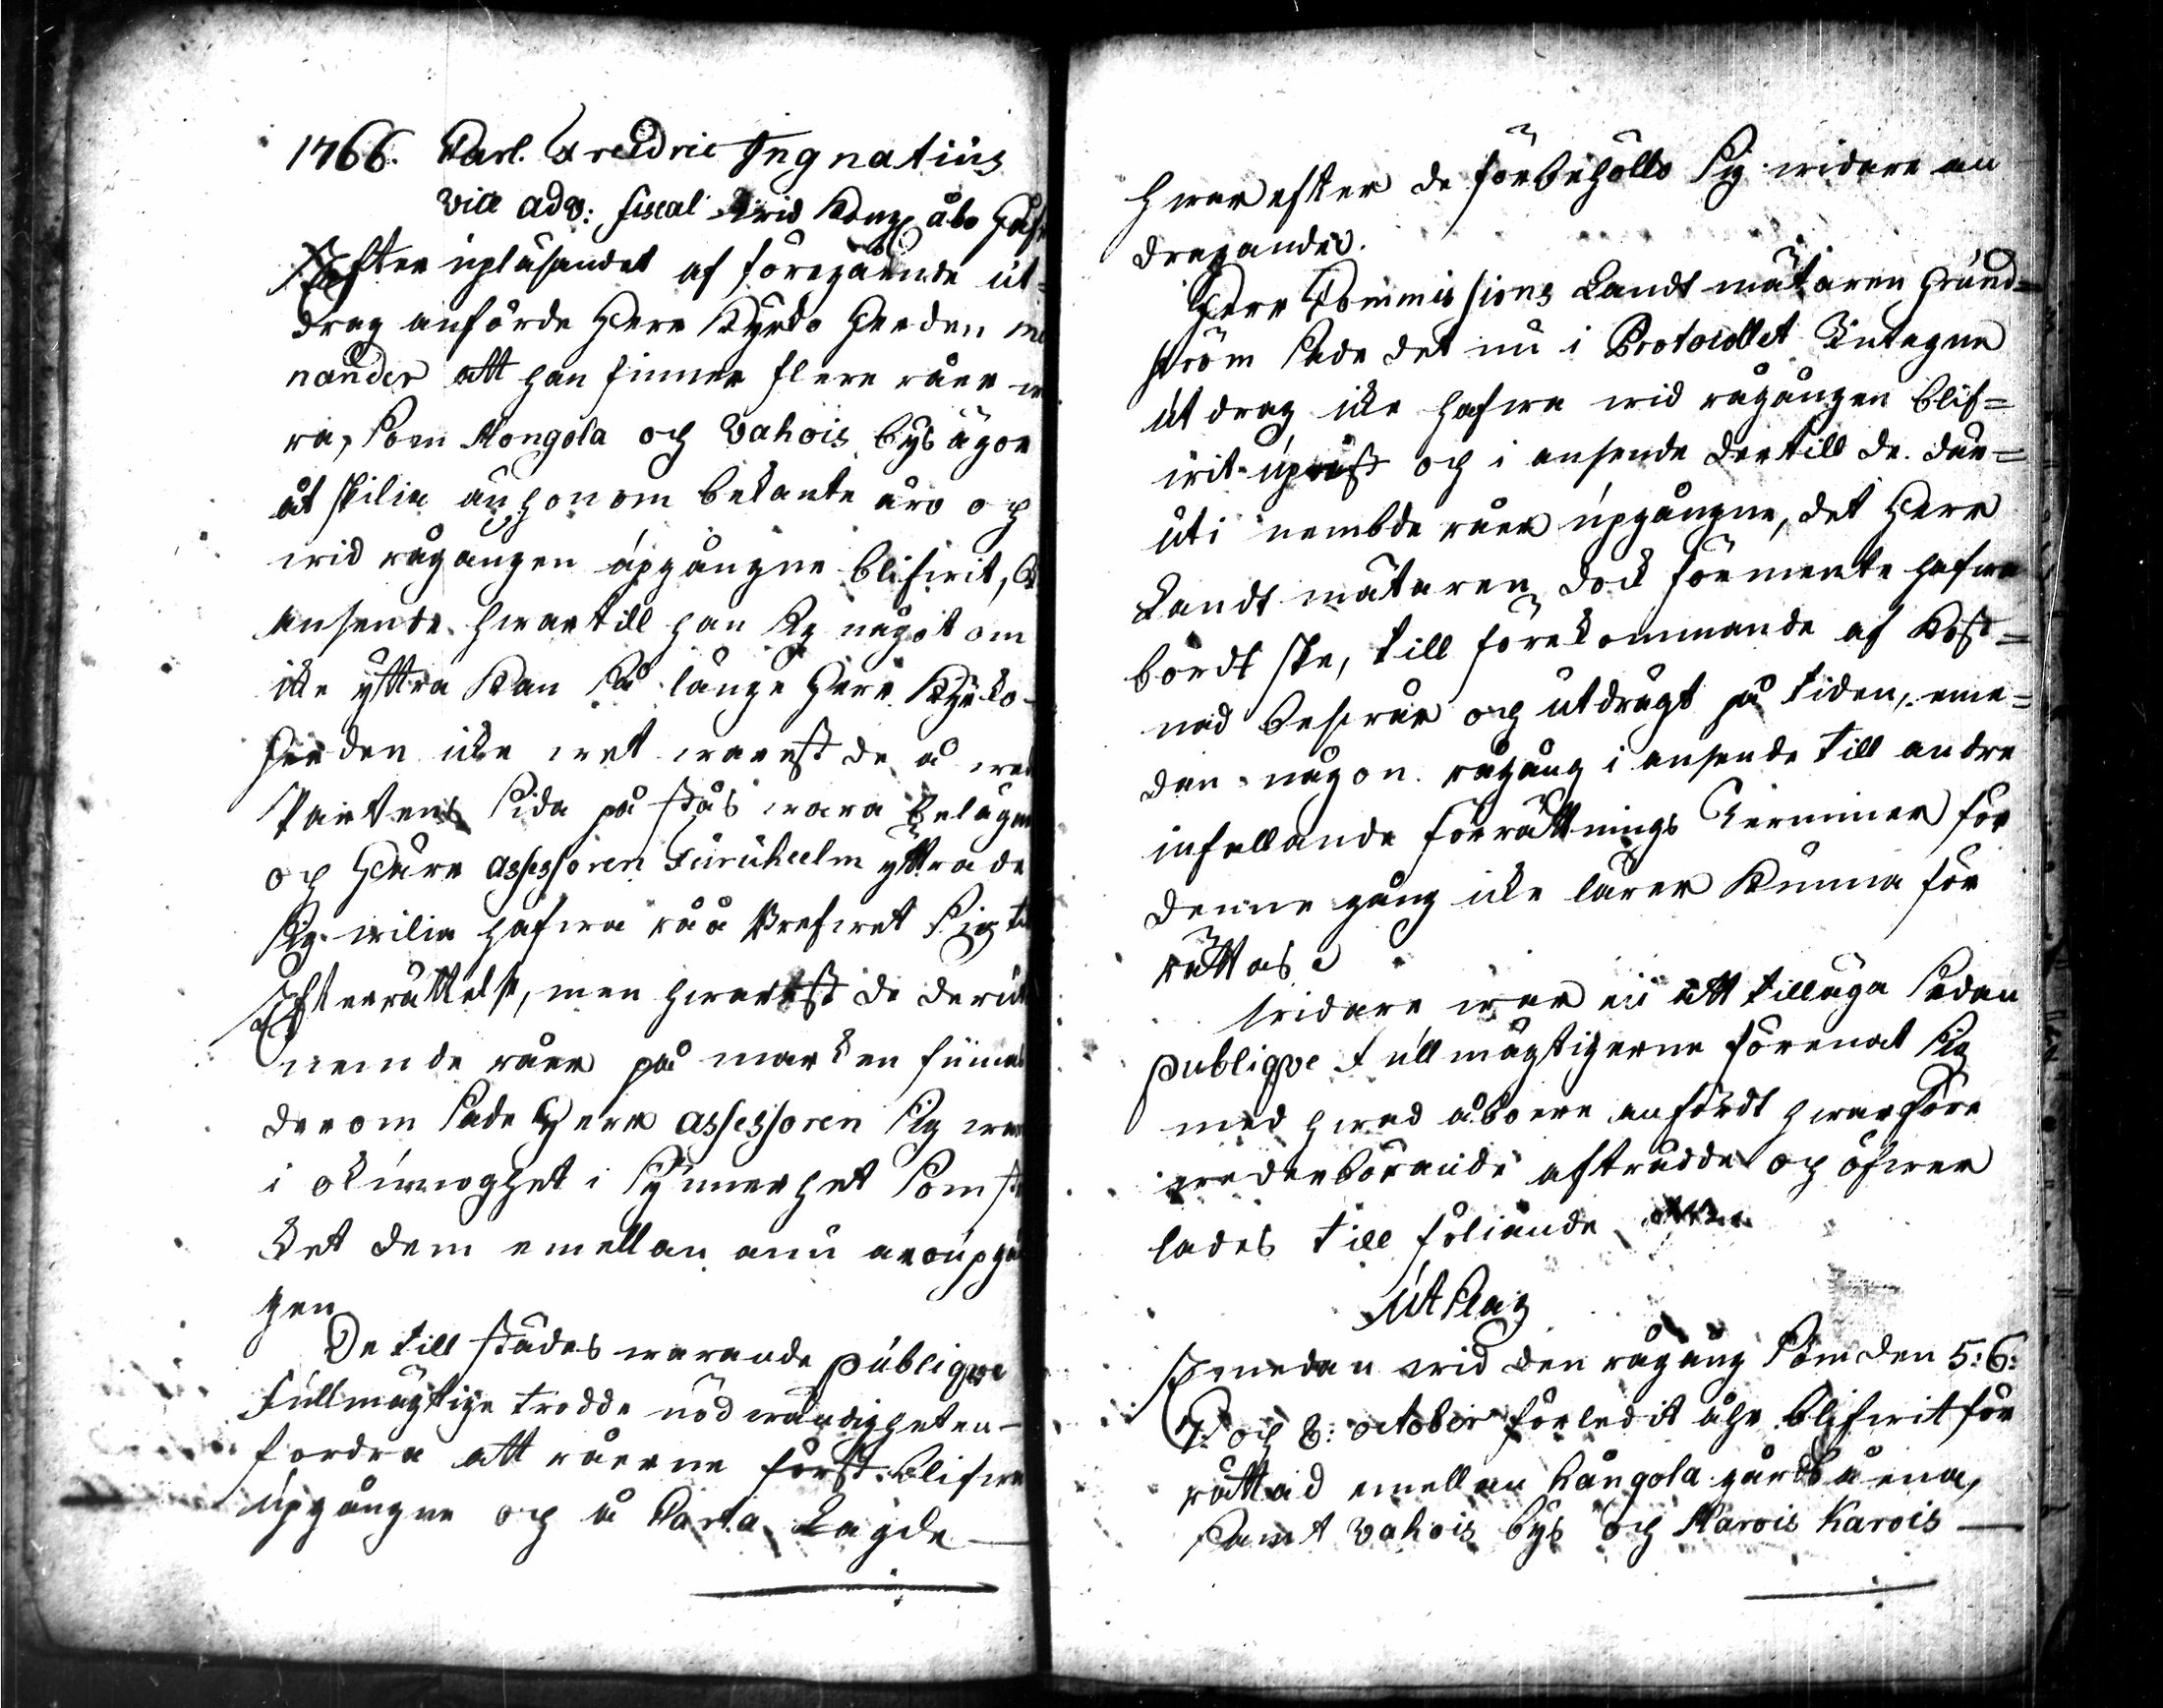 1766. Carl. Freidric Ingnatiüs
vice adv: fiscal wid Kong åbo Hof
Efter upläsandet af föregående ut=
drag anförde Herr Kyrko Herden
nander att han finner flere råer w
ra, som Kongola och Vahois bys ägor
åt skilia än honom bekante äro och
wid rågången upgångne blifwit,
anseende hwartill han sig något om
ike yttra kan så länge Herr Kyrko-
Herden ike wet warest de å
Partens sida på stås wara belägne
och Herr assessoren Furuhielm yttrade
sig wilia hafwa råå brefwet sig
Efterrättelse, men hwarest de derut
nemnde råer på marken finnes
derom sade Herr assessoren sig wara
i okunnoghet i synnerhet som
ket dem emellan ännu är oupgån
gen
De till städes warande publique
Fullmägtige trodde nödwändigheten
fordra att råerne först blifwa
upgångne och å Carta Lagde —
hwarefter de förbehöllo sig widare an
dragande.
Herr Commissions Landtmätaren Grund=
ström sade det nu i Protocollet Intagne
utdrag ike hafwa wid rågången blif=
wit upwist och i anseende dertill de där=
uti nembde råer upgångne, det Herr
Landtmätaren dock förmente hafwa
bordt ske, till förekommande af Kost=
nad beswär och utdrägt på tiden, eme=
dan någon rågång i anseende till andre
infallande förrättnings Terminer för
denne gång ike lärer kunna för
rättas.
Widare war ei att tilläga sedan
publique fullmägtigerne förenat sig
med hwad åboerne anfördt hwarföre
wederbörande afträdde och öfwer
lades till föliande
Utslag
Emedan wid den rågång som den 5: 6:
7: och 8: october förledit åhr blifwit för
rättad emellan Kångola gårds å ena,
samt Vahois bys och Karvis Karois —